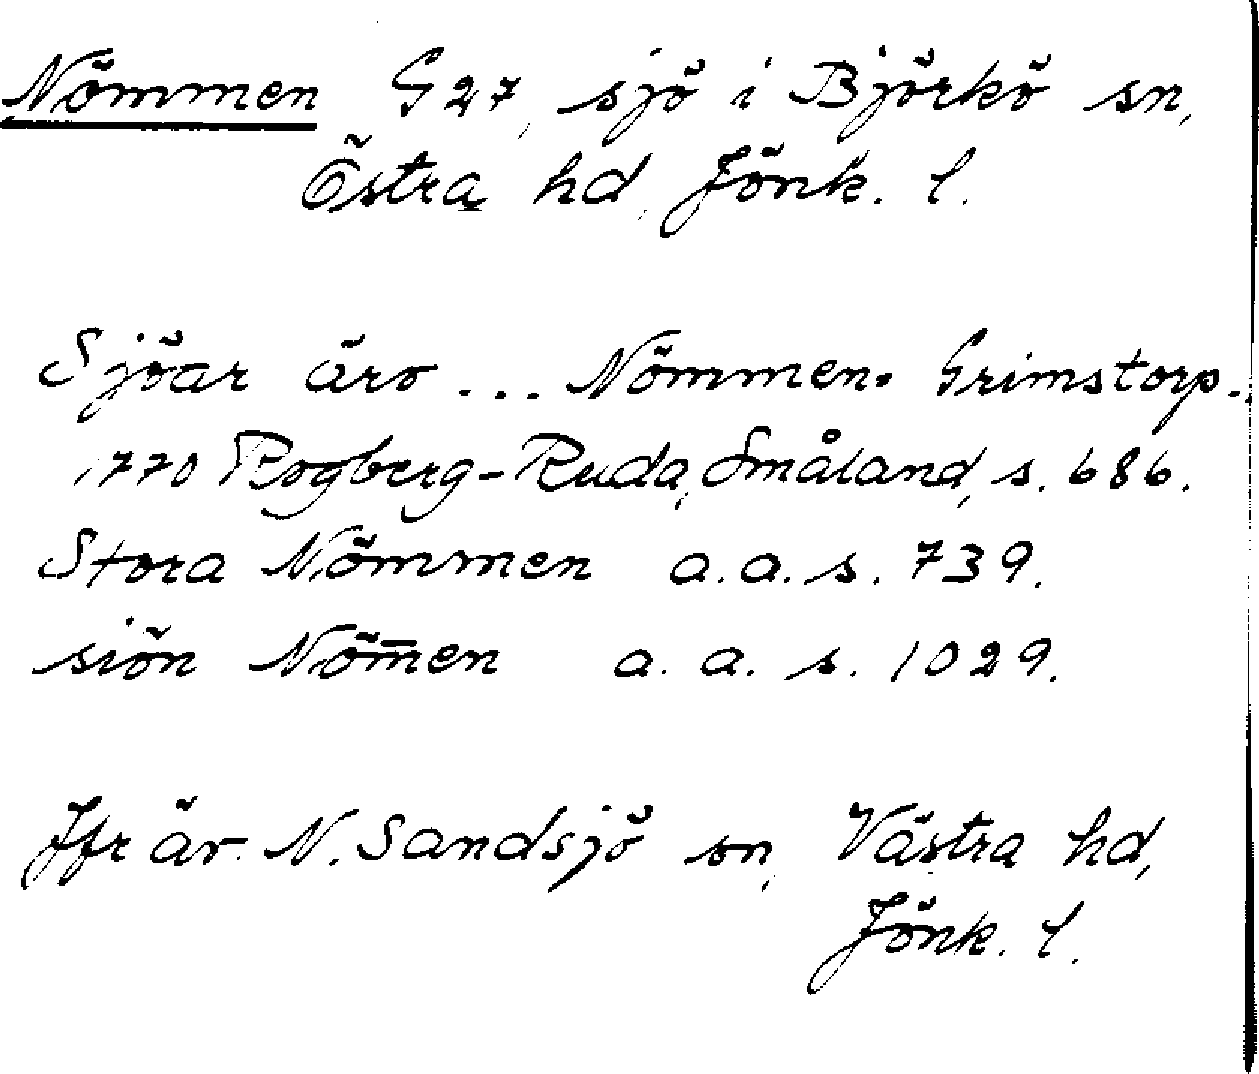 Nömmen G 27, sjö i Björkö sn,
Östra hd, Jönk. l.
Sjöar äro ... Nömmen. Grimstorp..
1770 Rogberg-Ruda, Småland, s. 686.
Stora Nömmen a.a. s. 739.
siön Nöm̄en a. a. s. 1029.
Jfr äv. N. Sandsjö sn, Västra hd,
Jönk. l.